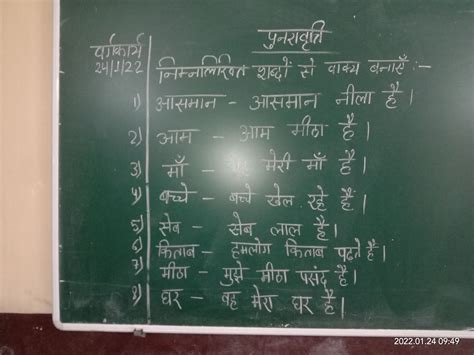 पुनरावृति
वर्गकार्य
24/1/22
निम्नलिखित शब्दों से वाक्य बनाएँ :-
1) आसमान - आसमान नीला है।
2) आम - आम मीठा है।
3) माँ - मेरी माँ है।
4) बच्चे - बच्चे खेल रहे हैं
5) सेब - सेब लाल है।
6) किताब - हमलोग किताब पढ़ते है।
7) मीठा - मुझे मीठा पसंद है।
8) घर - वह मेरा घर है।
2022.01.24 09:49